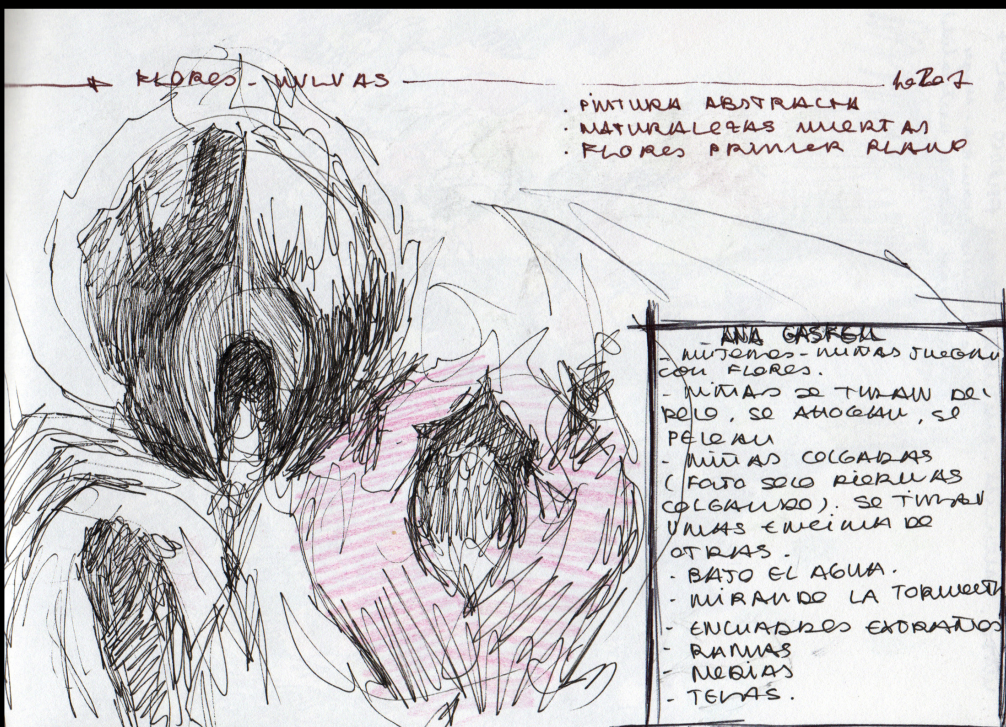 FLORES - VULVAS
· PINTURA ABSTRACTA
· NATURALEZAS MUERTAS
· FLORES PRIMER PLANO
ANA GASKELL
- MUJERES - NIÑAS JUEGAN
CON FLORES.
- NIÑAS SE TIRAN DEL
PELO, SE AHOGAN, SE
PELEAN
- NIÑAS COLGADAS
(FOTO SOLO PIERNAS
COLGANDO). SE TIRAN
UNAS ENCIMA DE
OTRAS.
- BAJO EL AGUA.
- MIRANDO LA TORMENTA
- ENCUADRES EXTRAÑOS
- RAMAS
- MEDIAS
- TELAS.